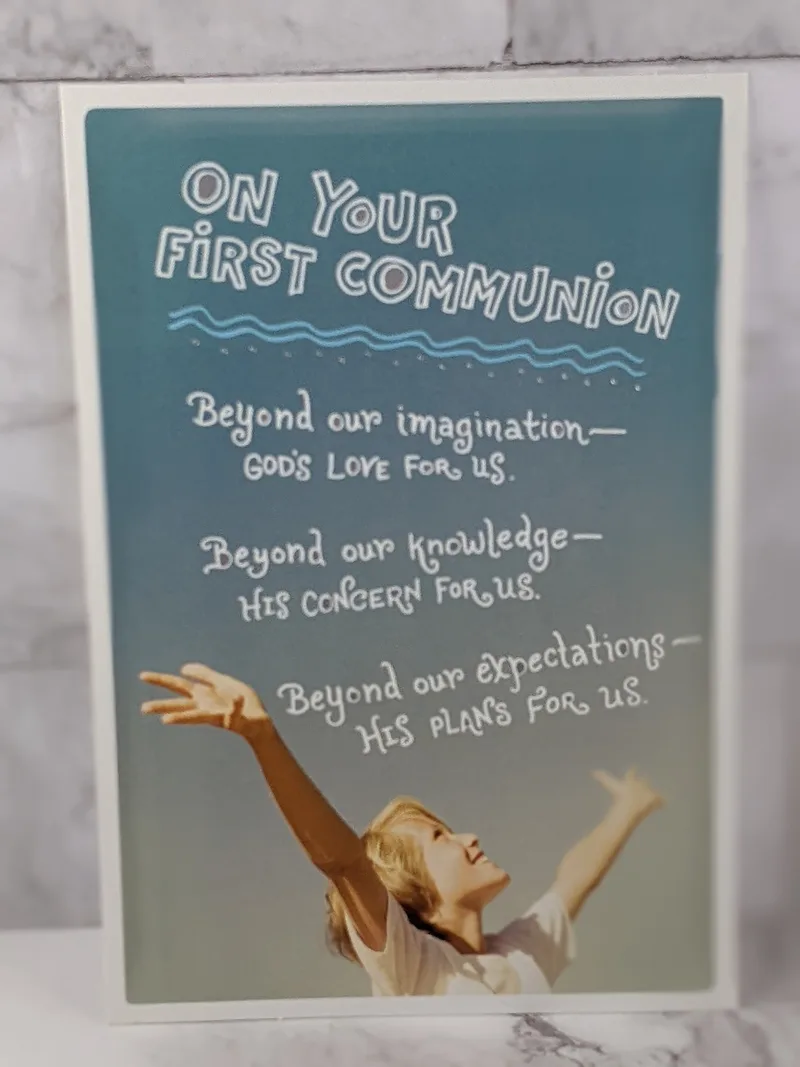 ON YOUR
FiRST COMMUNiON
Beyond our imagination—
GOD'S LOVE FOR US.
Beyond our knowledge—
HIS CONCERN FOR US.
Beyond our expectations—
HIS PLANS FOR US.